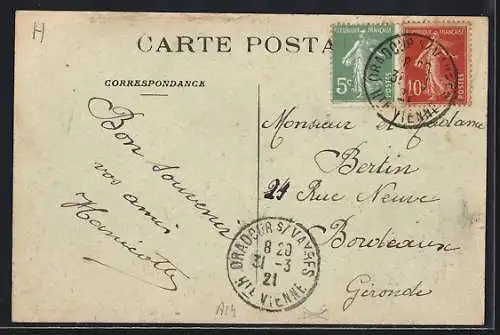 H
CARTE POSTA
CORRESPONDANCE
RÉPUBLIQUE FRANÇAISE
5c
POSTES
RÉPUBLIQUE FRANÇAISE
10c
POSTES
ORADOUR S/VAYRES
8 20
31
Hte VIENNE
Bon souvenir
vos amis
Monsieur et Madame
Bertin
24 Rue Neuve
Bordeaux
Gironde
ORADOUR S/VAYRES
8 20
31 -3
21
Hte VIENNE